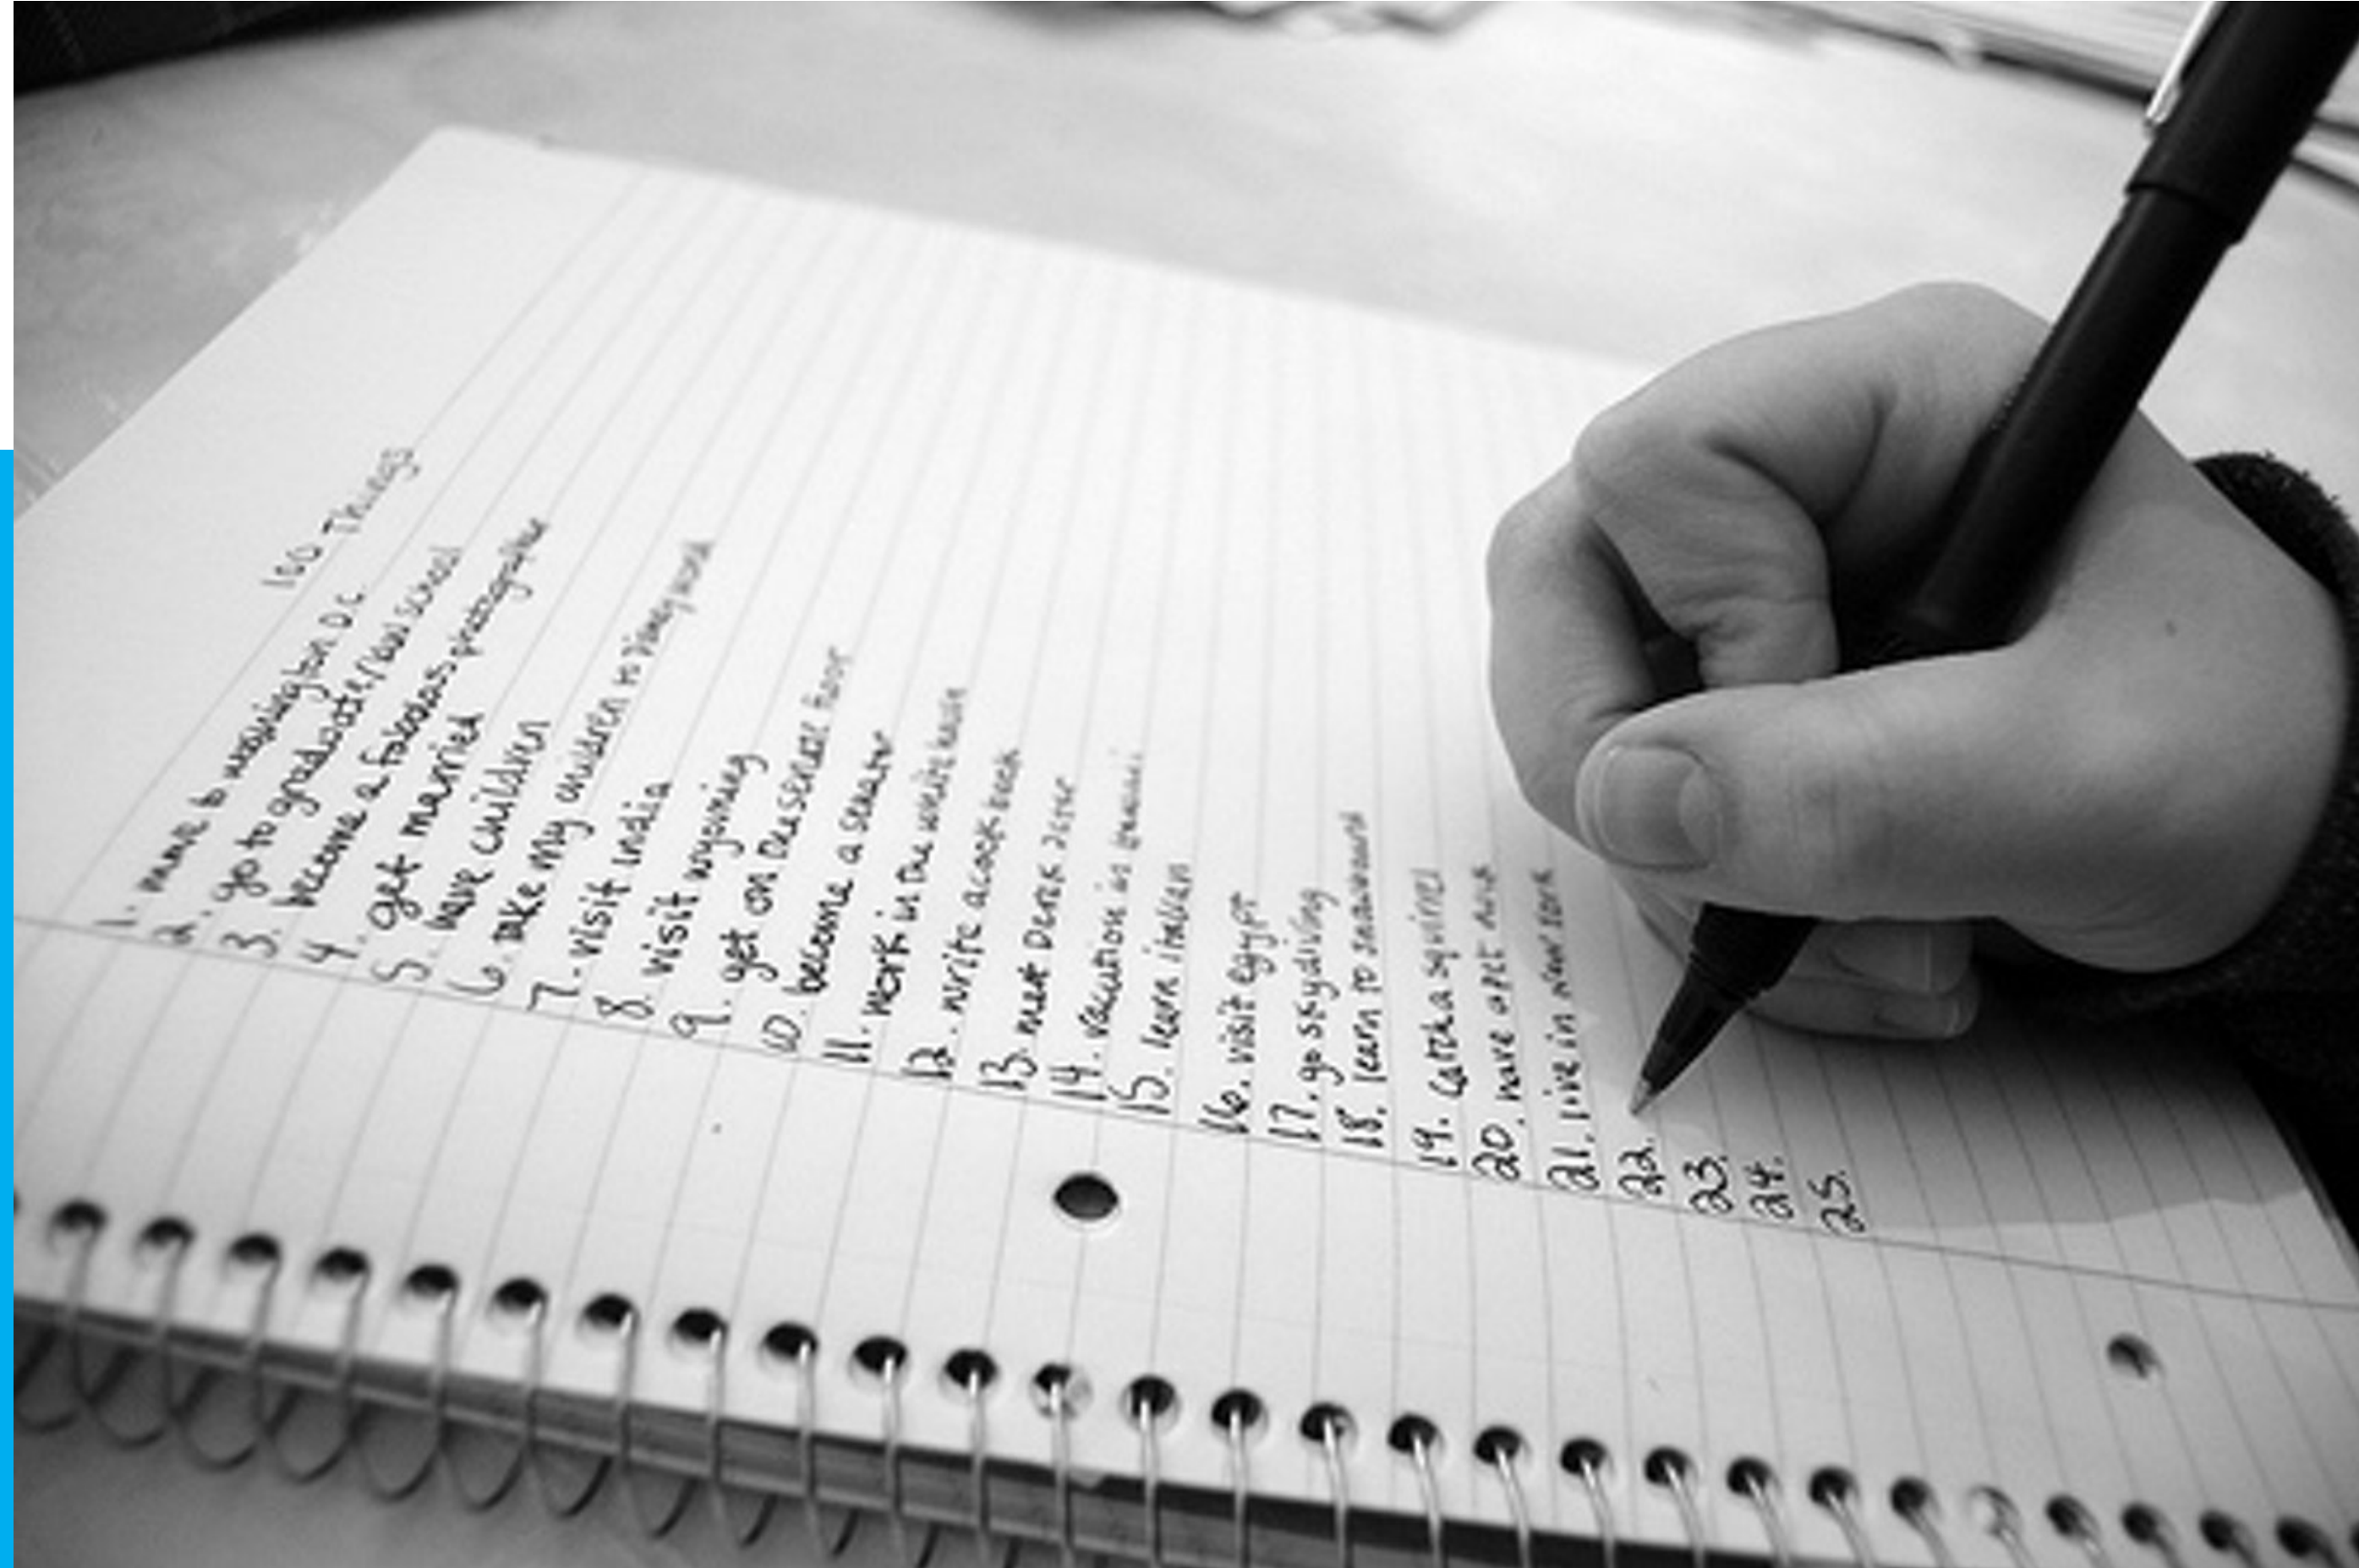 100 Things
1. move to washington D.C.
2. go to graduate/law school
3. become a fabulous photographer
4. get married
5. have children
6. take my children to disney world
7. visit India
8. visit wyoming
9. get on the senate floor
10. become a senator
11. work in the white house
12. write a cook book
13. meet Derek Jeter
14. vacation in
15. learn italian
16. visit egypt
17. go skydiving
18. learn to snowboard
19. catch a squirrel
20. have a pet
21. live in New York
22.
23.
24.
25.